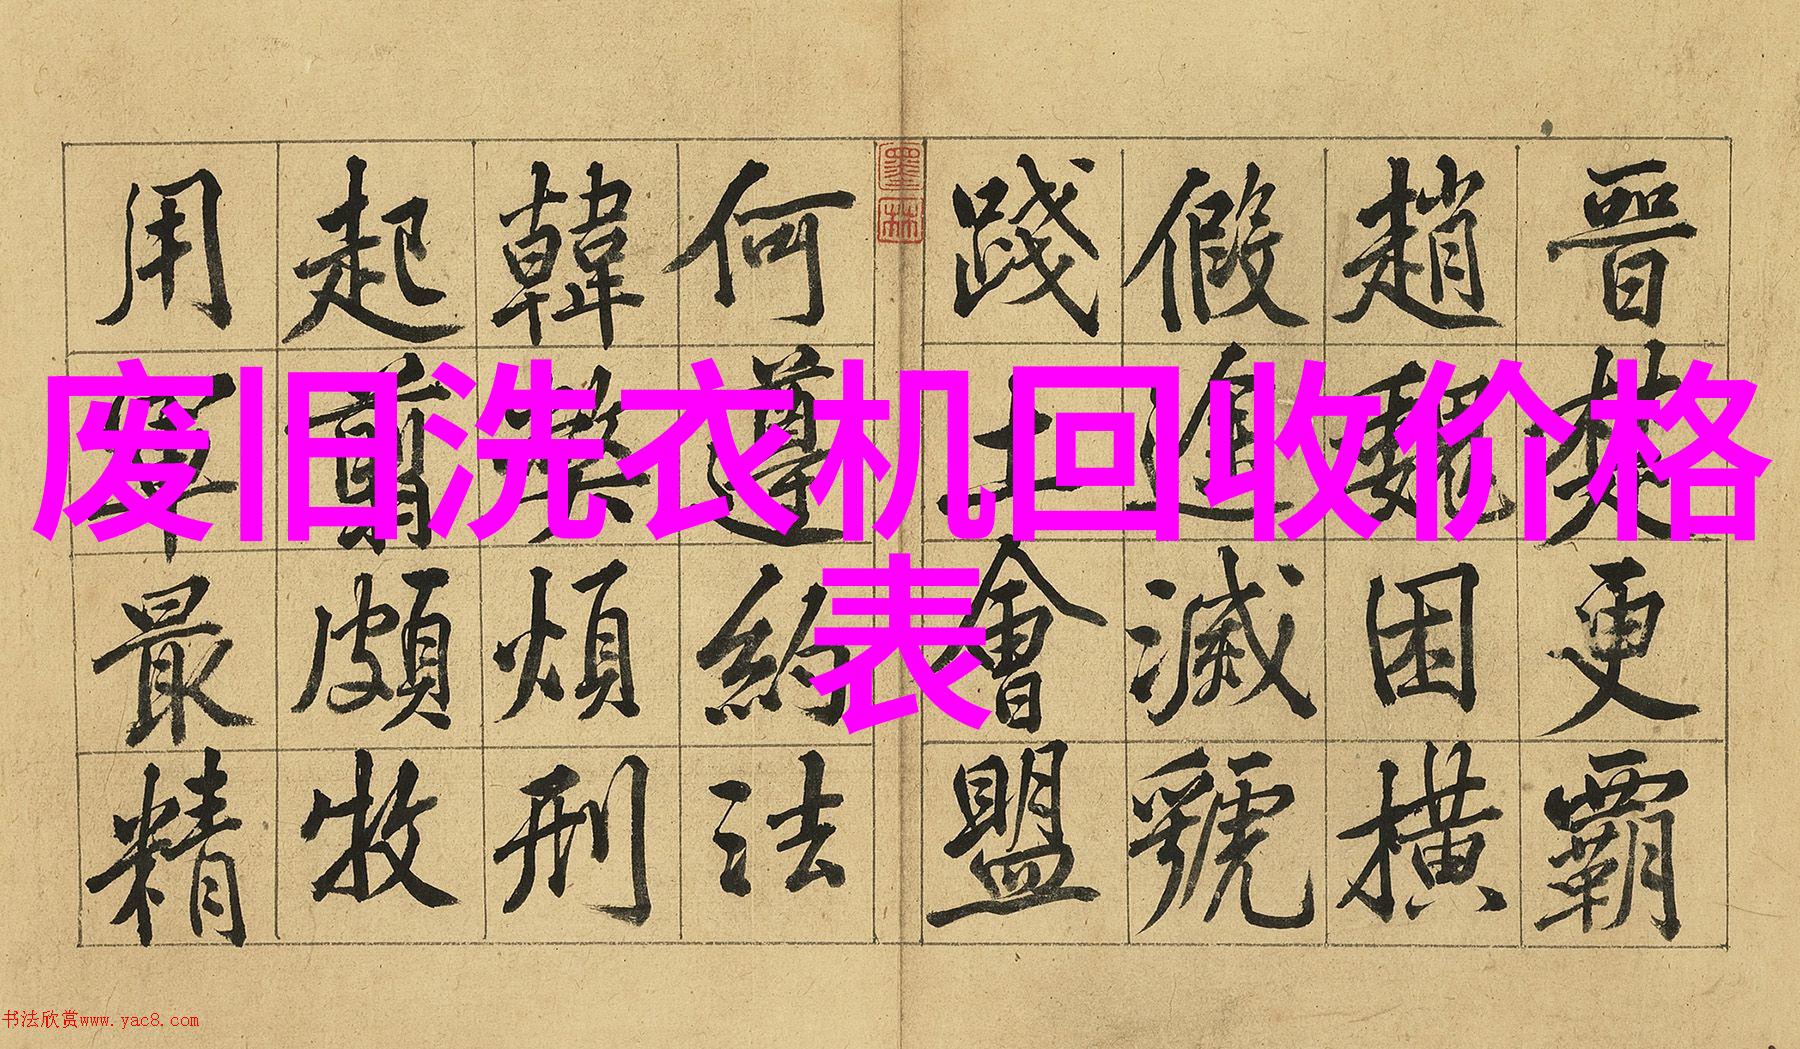 废旧洗衣机回收价格
表
晉楚更霸
趙魏困橫
假滅虢
踐土會盟
墨林
何遵約法
韓弊煩刑
起翦頗牧
用軍最精
书法欣赏www.yac8.com